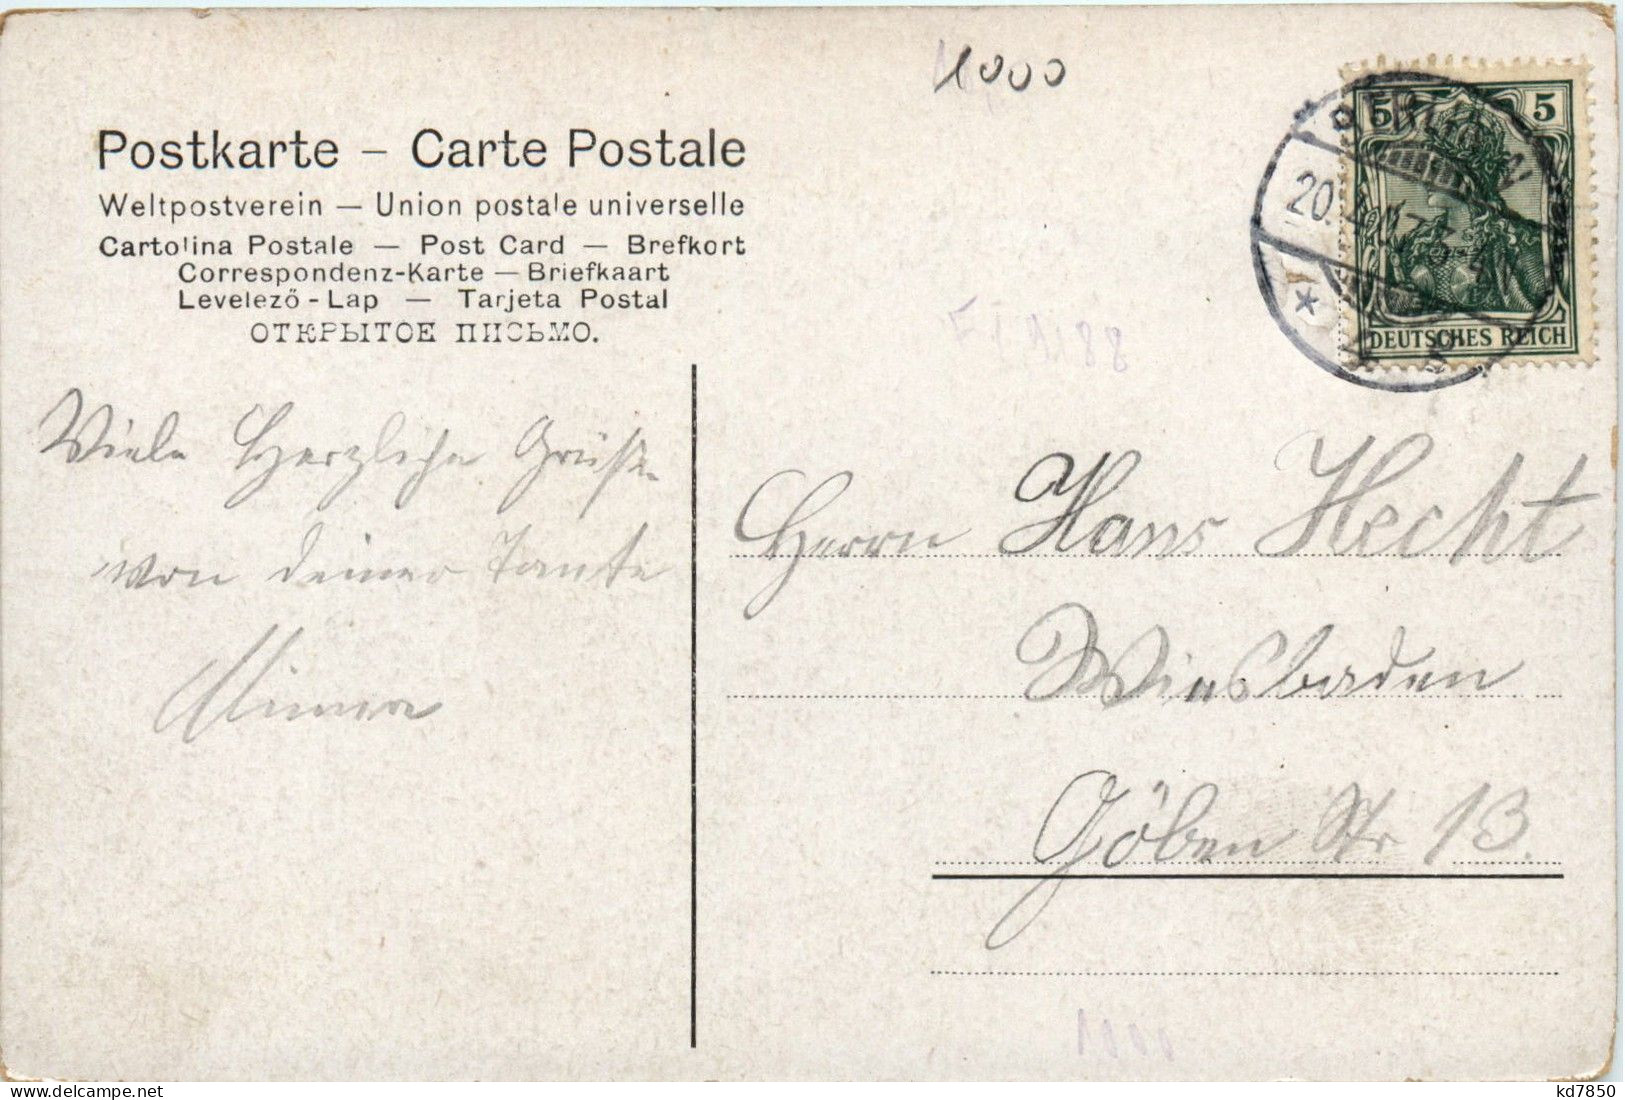 1000
Postkarte – Carte Postale
Weltpostverein — Union postale universelle
Cartolina Postale — Post Card — Brefkort
Correspondenz-Karte — Briefkaart
Levelező - Lap — Tarjeta Postal
ОТКРЫТОЕ ПИСЬМО.
5 5
BERLIN
20.
DEUTSCHES REICH
Viele Herzliche Grüße
von deiner Tante
Minna
Herrn Hans Hecht
Wiesbaden
Göben Str 13.
1000
kd7850
www.delcampe.net